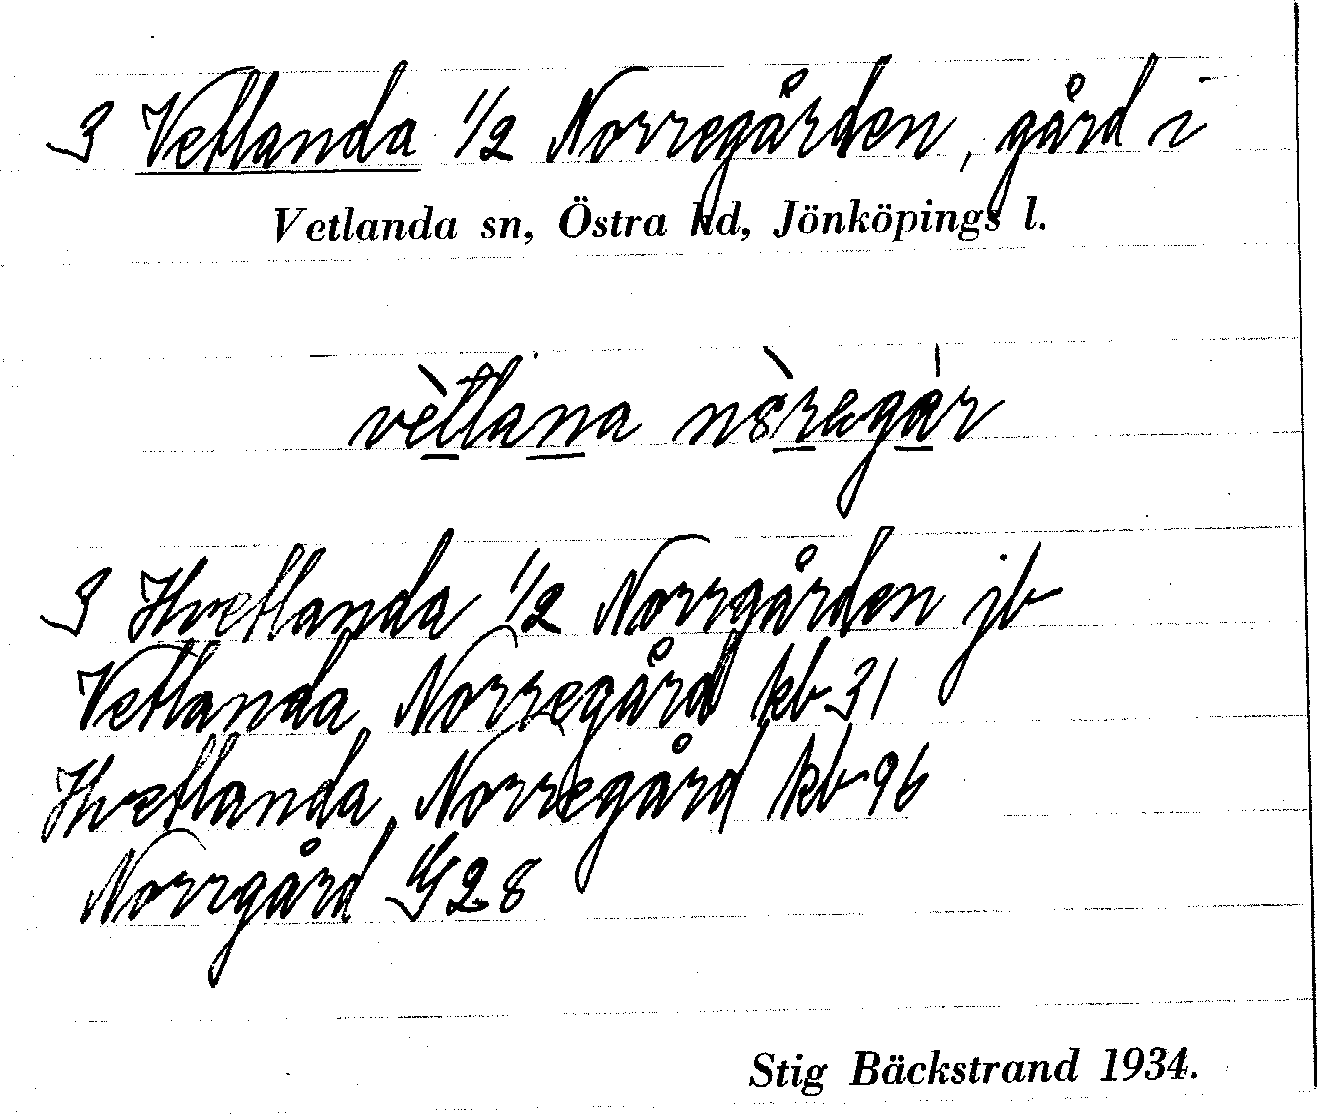 3 Vetlanda 1/2 Norregården, gård i
Vetlanda sn, Östra hd, Jönköpings l.
vètlana
3 Hvetlanda 1/2 Norrgården jb
Vetlanda, Norregård kb 31
Hvetlanda, Norregård kb 96
Norrgård 28
Stig Bäckstrand 1934.